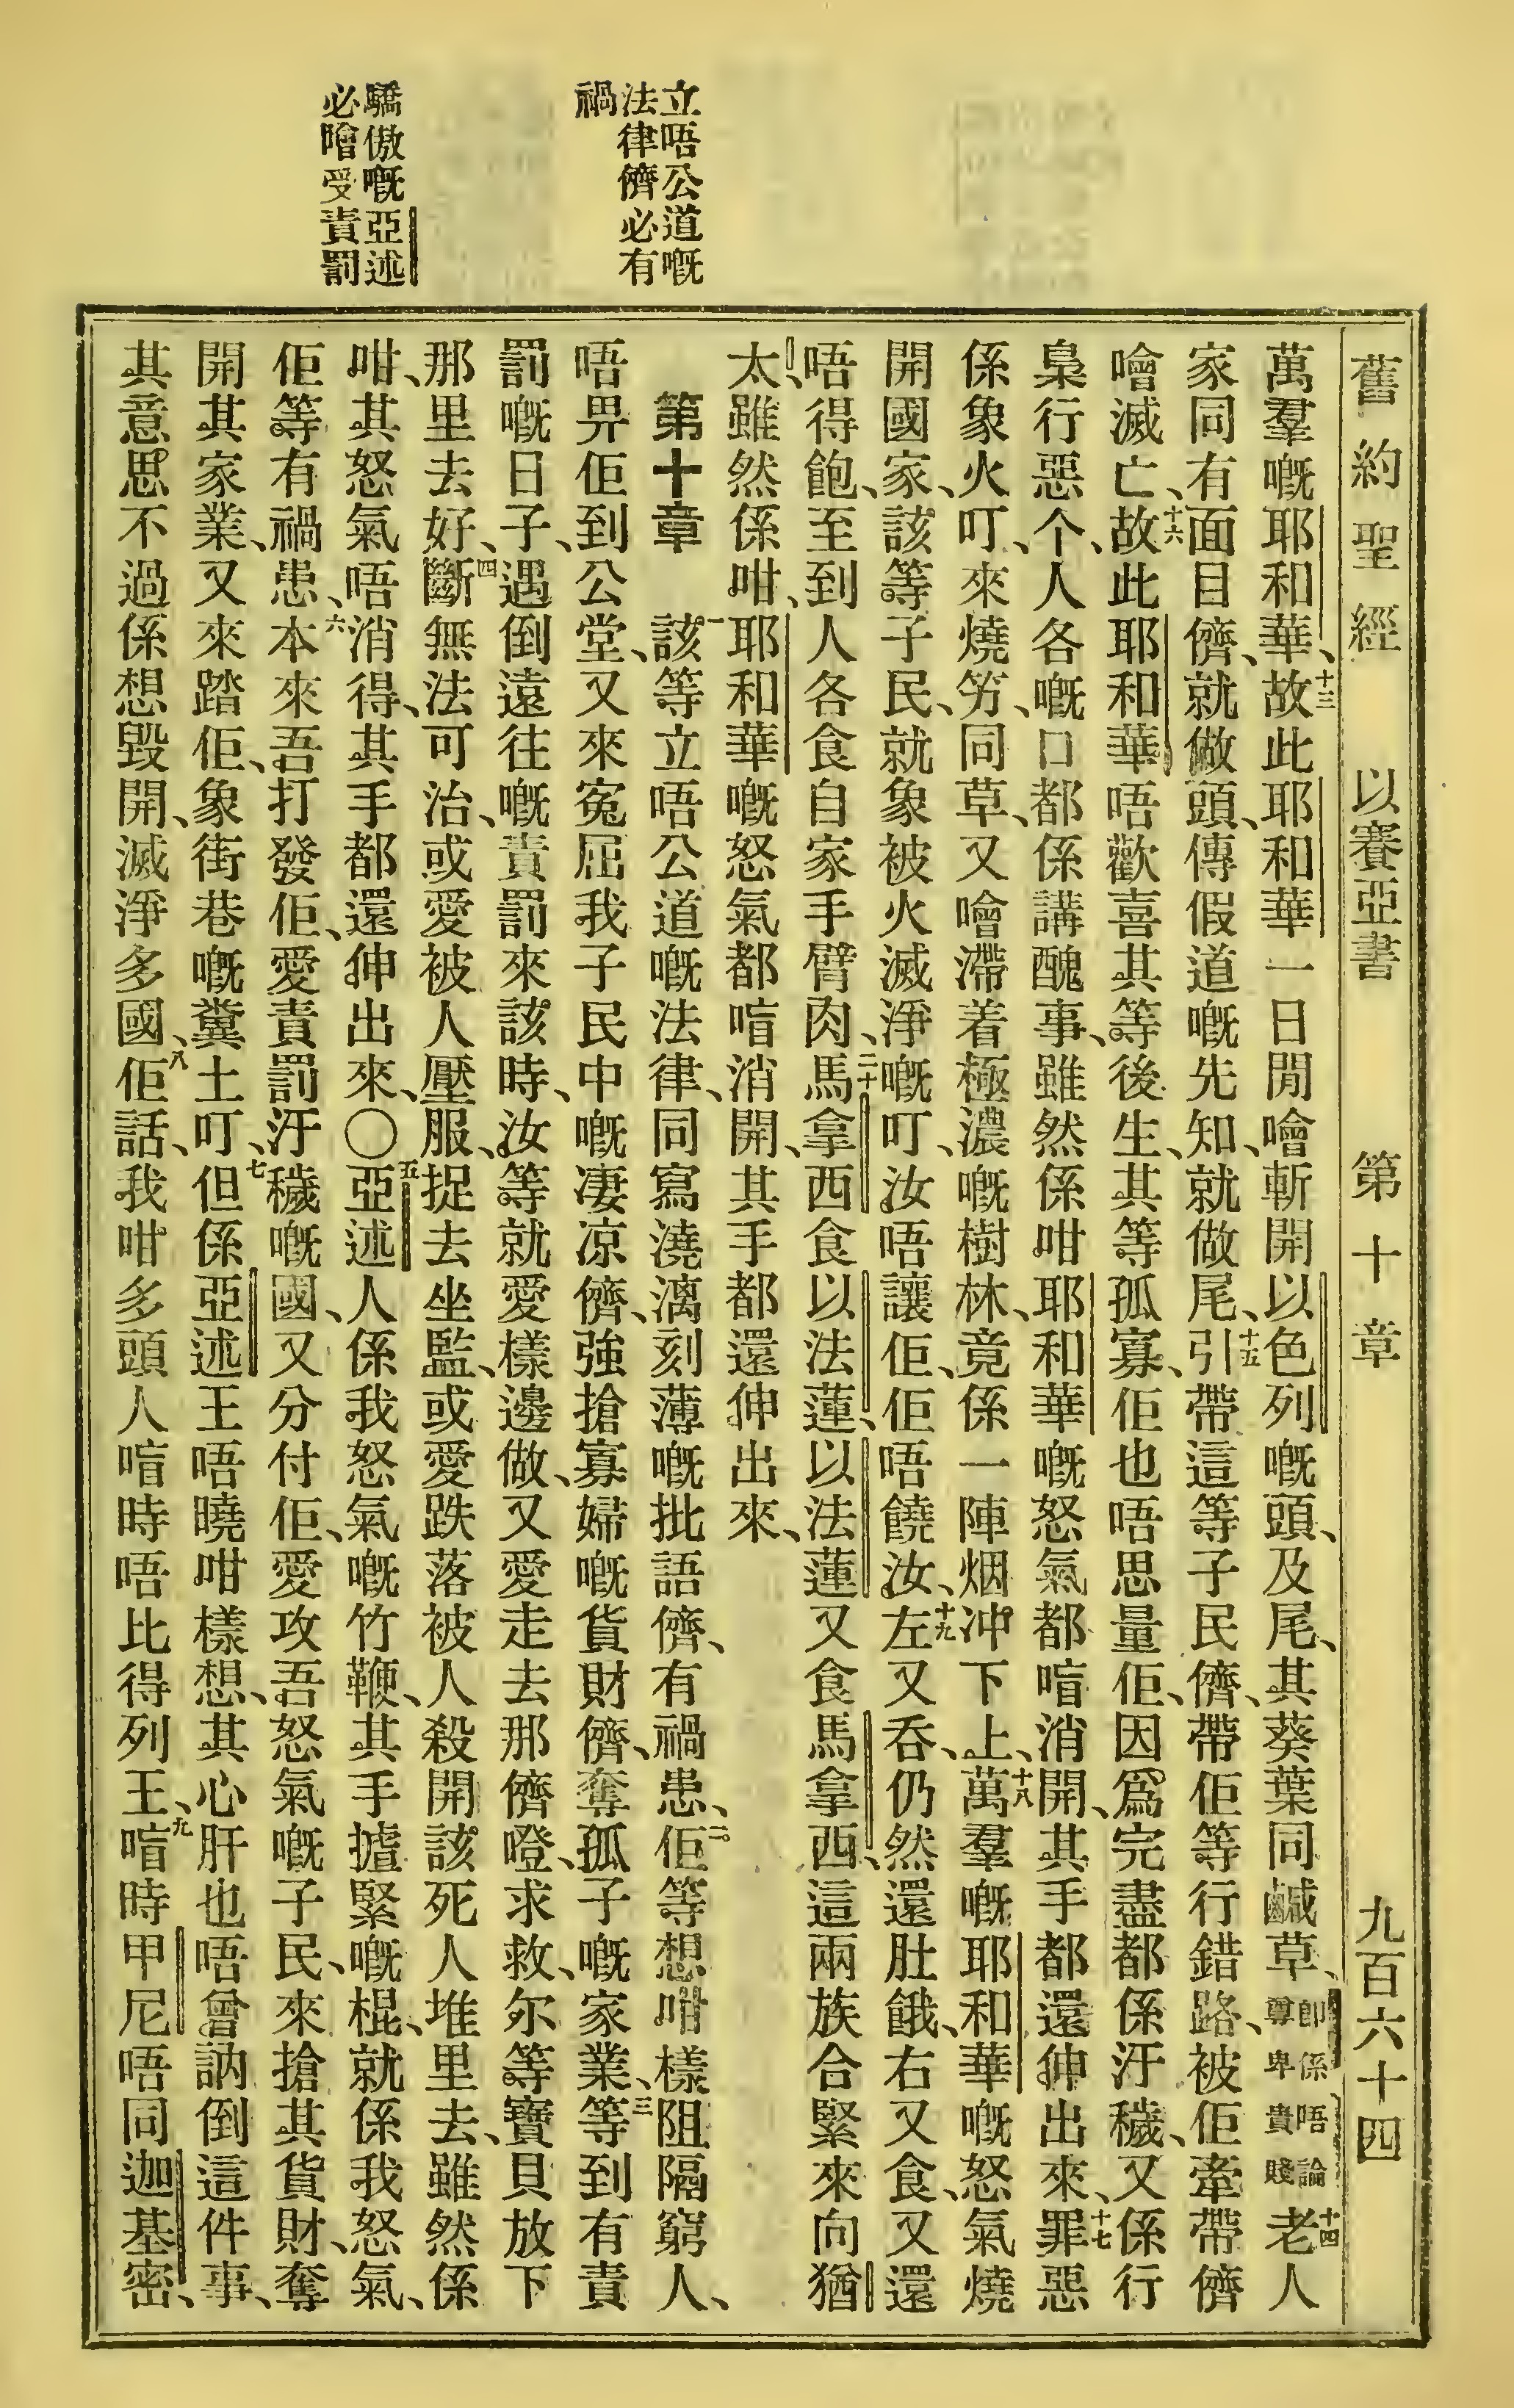 舊約聖經 以賽亞書 第十章 九百六十四
立唔公道嘅
法律儕必有
禍
驕傲嘅亞述
必噲受責罰
萬羣嘅耶和華、十三故此耶和華一日閒噲斬開以色列嘅頭、及尾、其葵葉同鹹草、卽係唔論尊卑貴賤十四老人
家同有面目儕、就做頭、傳假道嘅先知、就做尾、十五引帶這等子民儕、帶佢等行錯路、被佢牽帶儕
噲滅亡、十六故此耶和華唔歡喜其等後生、其等孤寡、佢也唔思量佢、因爲完盡都係汙穢、又係行
梟行惡个、人各嘅口都係講醜事、雖然係咁耶和華嘅怒氣都唁消開、其手都還伸出來、十七罪惡
係象火叮、來燒竻、同草、又噲滯着極濃嘅樹林、竟係一陣烟冲下上、十八萬羣嘅耶和華嘅怒氣燒
開國家、該等子民、就象被火滅淨嘅叮、汝唔讓佢、佢唔饒汝、十九左又吞、仍然還肚餓、右又食、又還
唔得飽、至到人各食自家手臂肉、二十馬拿西食以法蓮、以法蓮又食馬拿西、這兩族合緊來向猶
太、雖然係咁、耶和華嘅怒氣都唁消開、其手都還伸出來、
第十章 一該等立唔公道嘅法律、同寫澆漓刻薄嘅批語儕、有禍患、二佢等想咁樣阻隔窮人、
唔畀佢到公堂、又來寃屈我子民中嘅凄凉儕、強搶寡婦嘅貨財儕、奪孤子嘅家業、三等到有責
罰嘅日子、遇倒遠往嘅責罰來該時、汝等就愛樣邊做、又愛走去那儕噔、求救、尔等寶貝放下
那里去好、四斷無法可治、或愛被人壓服、捉去坐監、或愛跌落被人殺開該死人堆里去、雖然係
咁、其怒氣唔消得、其手都還伸出來、〇五亞述人係我怒氣嘅竹鞭、其手摣緊嘅棍、就係我怒氣、
佢等有禍患、六本來吾打發佢、愛責罰汙穢嘅國、又分付佢、愛攻吾怒氣嘅子民、來搶其貨財、奪
開其家業、又來踏佢、象街巷嘅糞土叮、七但係亞述王唔曉咁樣想、其心肝也唔曾訥倒這件事、
其意思不過係想毀開、滅淨多國、八佢話、我咁多頭人唁時唔比得列王、九唁時甲尼唔同迦基密、